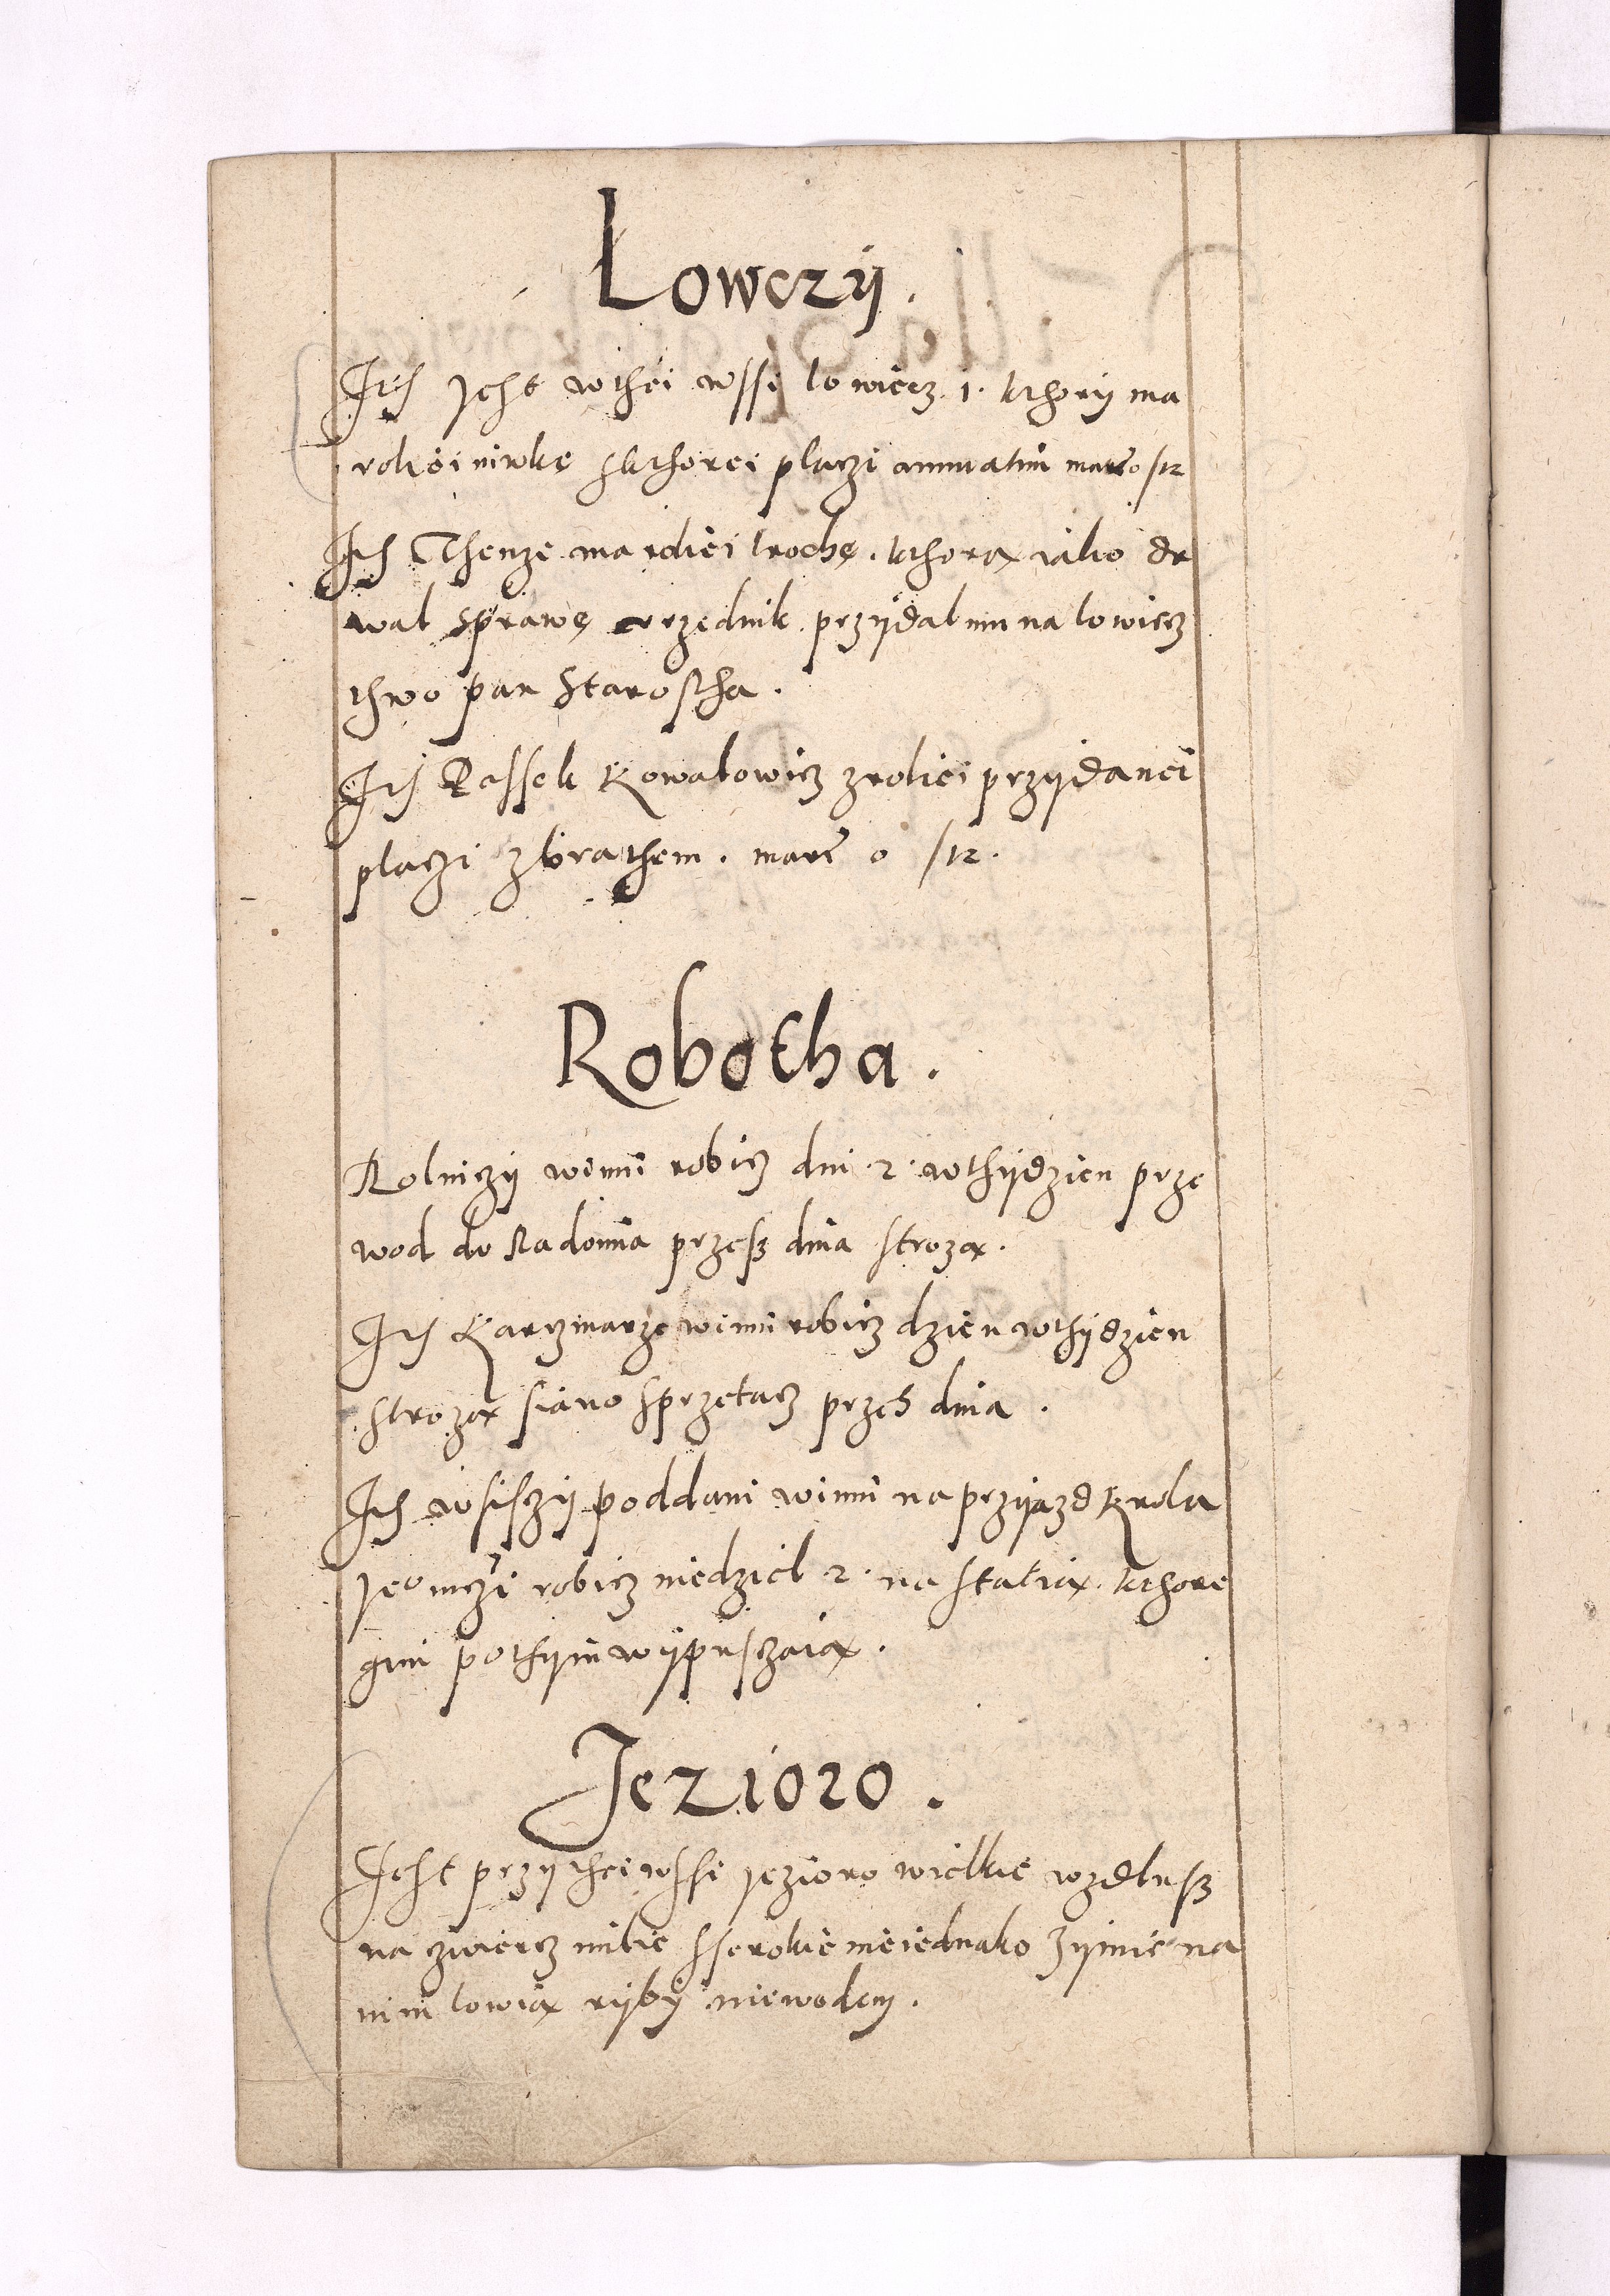 Łowczÿ.
Itē Jest wthei wssi lowiecz .1. kthorÿ ma
roliei niwkę skthorei placzi annuatim marc 0/12
Itē Thenze ma roliei trochę. kthorą iako da
wal sprawę vrzednik przÿdal mu na lowiecz
thwo pan Staroscha.
Itē Passek Kowalowicz zroliei przÿdanei
placzi zbrathem. marc 0 /12.
Robotha.
Rolniczÿ winni robicz dni .2. wthÿdzien prze
wod do Radomia przesz dnia strozą.
Itē Karczmarze winni robicz dzien wthÿdzien
strozą siano sprzetacz przes dnia.
Itē wsisczÿ poddani winni na przÿiazd Krola
Jeo mczi robicz niedziel 2. na statią. kthore
gim pothÿm wÿpusczaią.
Jezioro.
Jest przÿ thei wssi Jezioro wielkie wzdlusz
na zwiercz milie sserokie nieiednako zÿmie na
nim lowią rÿbÿ niewodem.